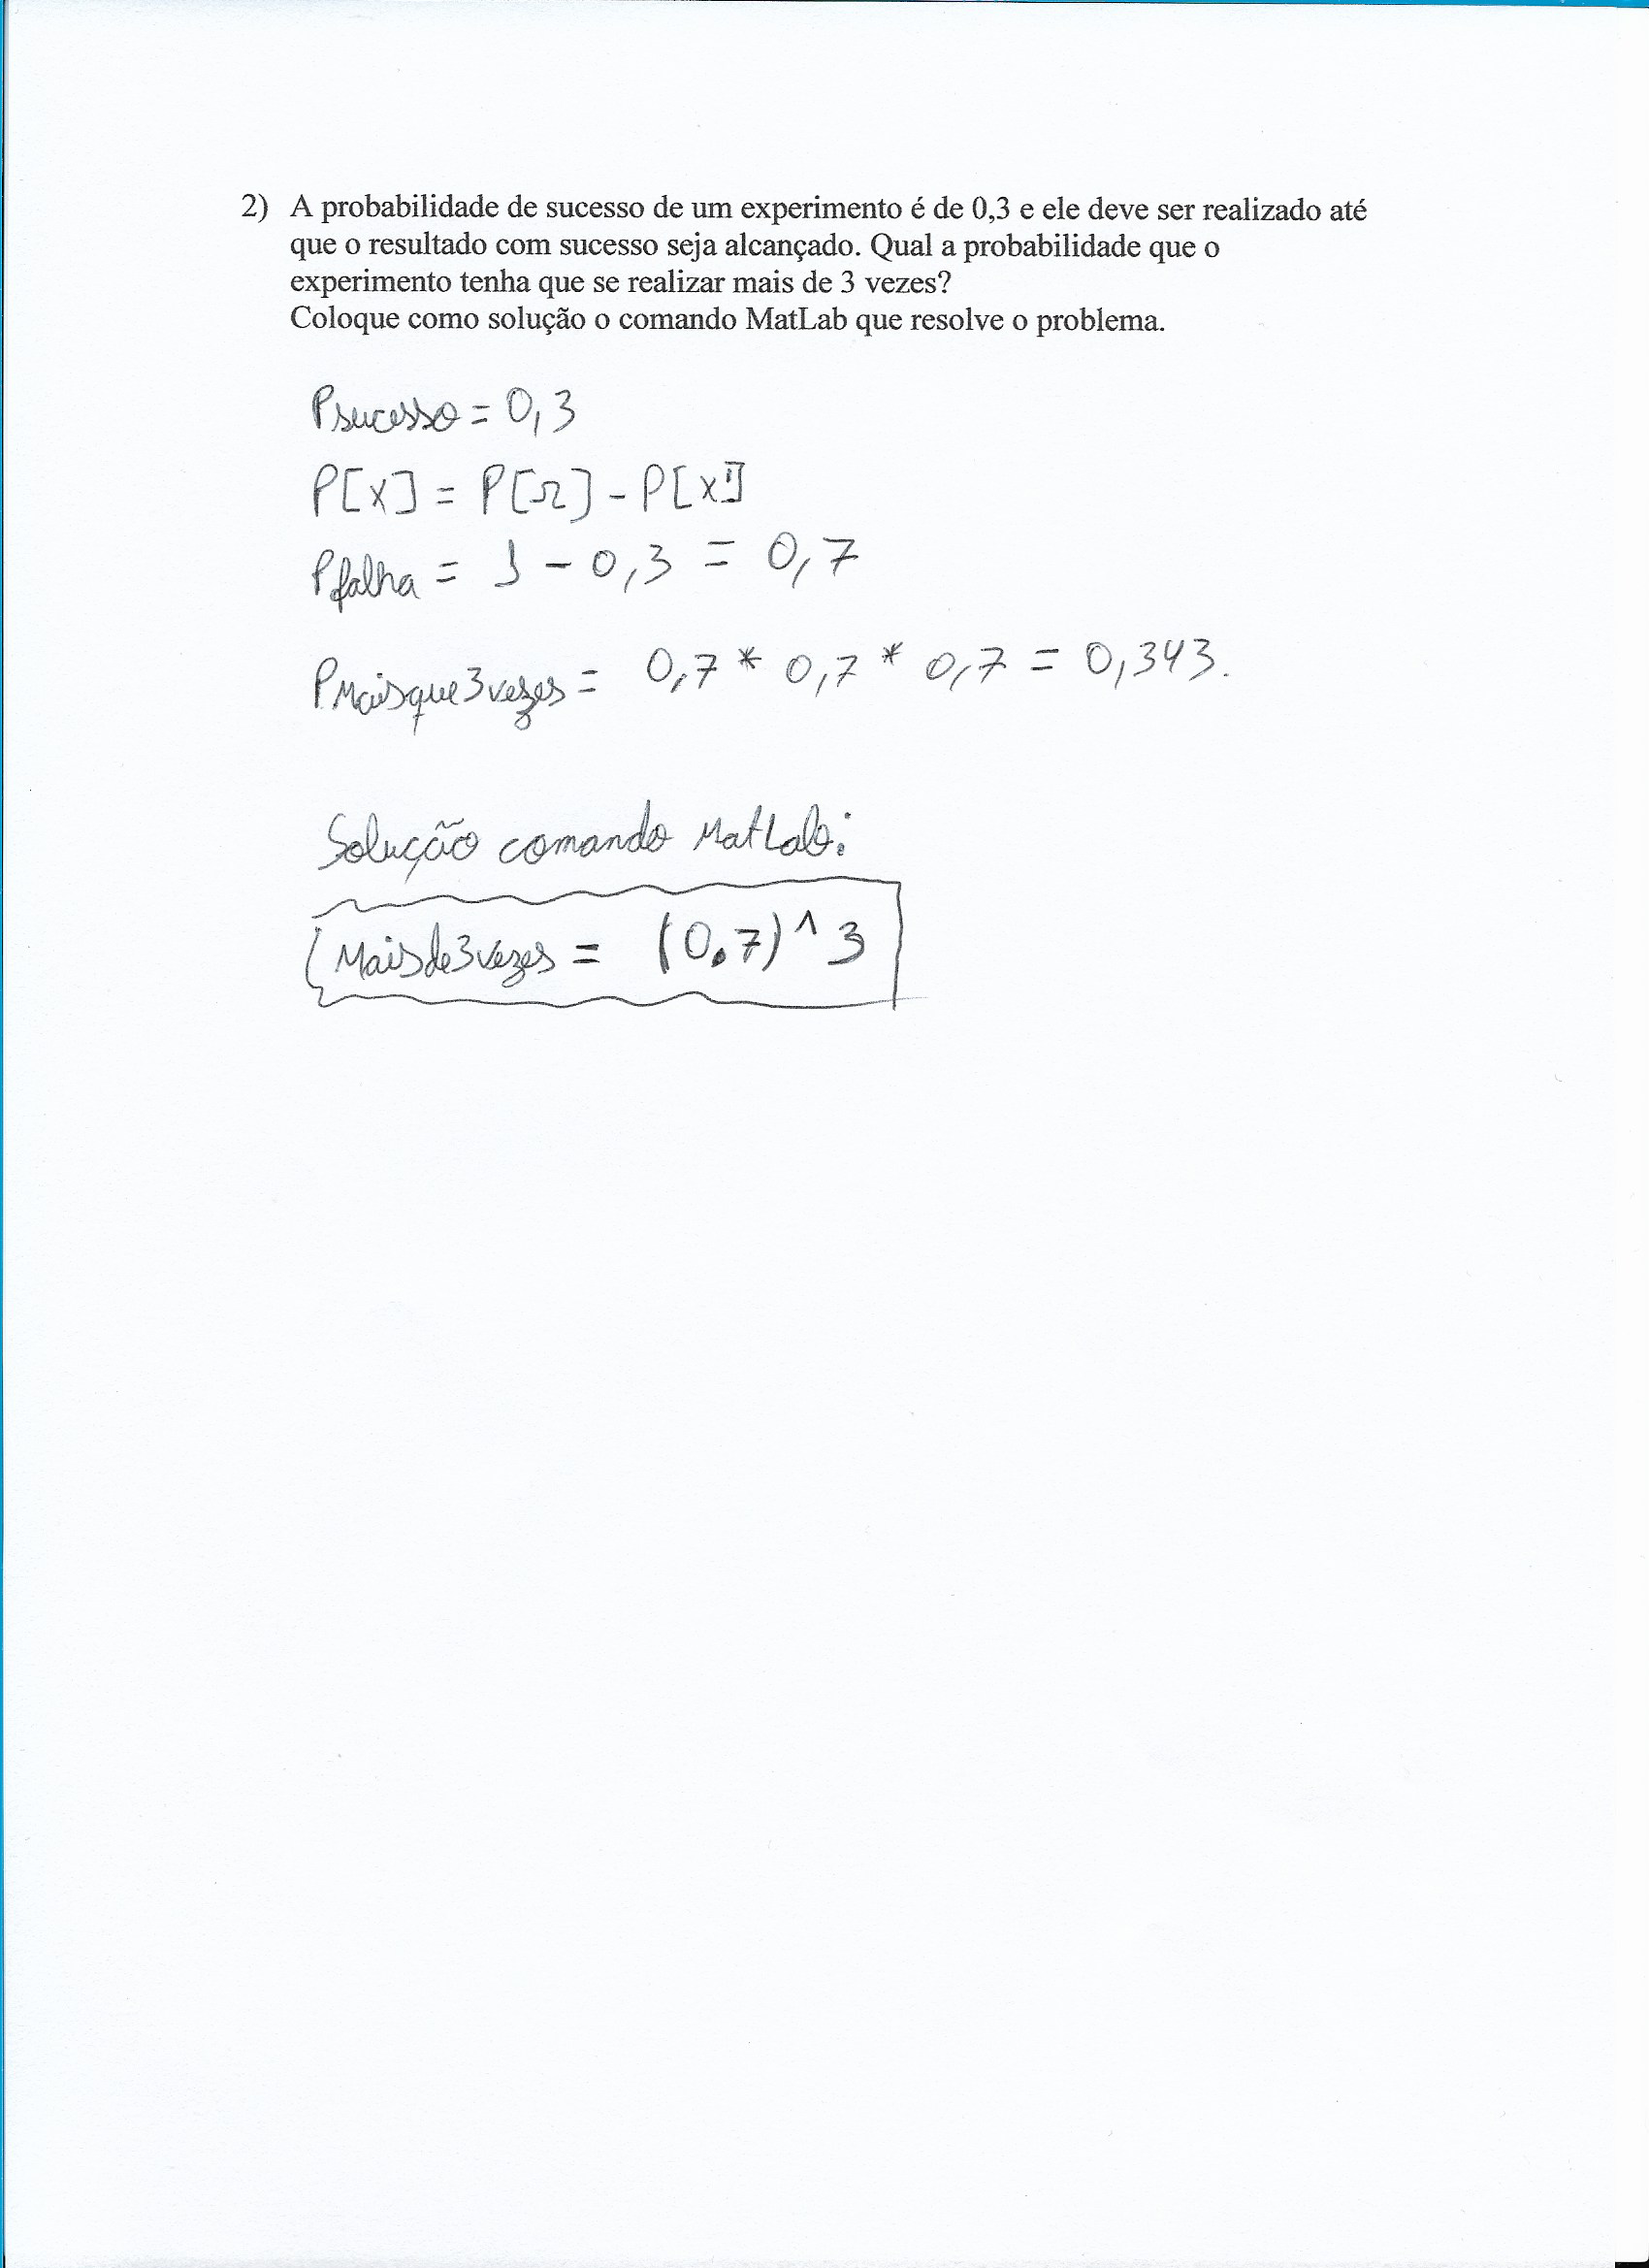 2) A probabilidade de sucesso de um experimento é de 0,3 e ele deve ser realizado até
que o resultado com sucesso seja alcançado. Qual a probabilidade que o
experimento tenha que se realizar mais de 3 vezes?
Coloque como solução o comando MatLab que resolve o problema.
Psucesso = 0,3
P[X] = P[Ω] - P[X']
Pfalha = 1 - 0,3 = 0,7
PMaisque3vezes = 0,7 * 0,7 * 0,7 = 0,343.
Solução comando MatLab:
Maisde3vezes = (0.7)^3